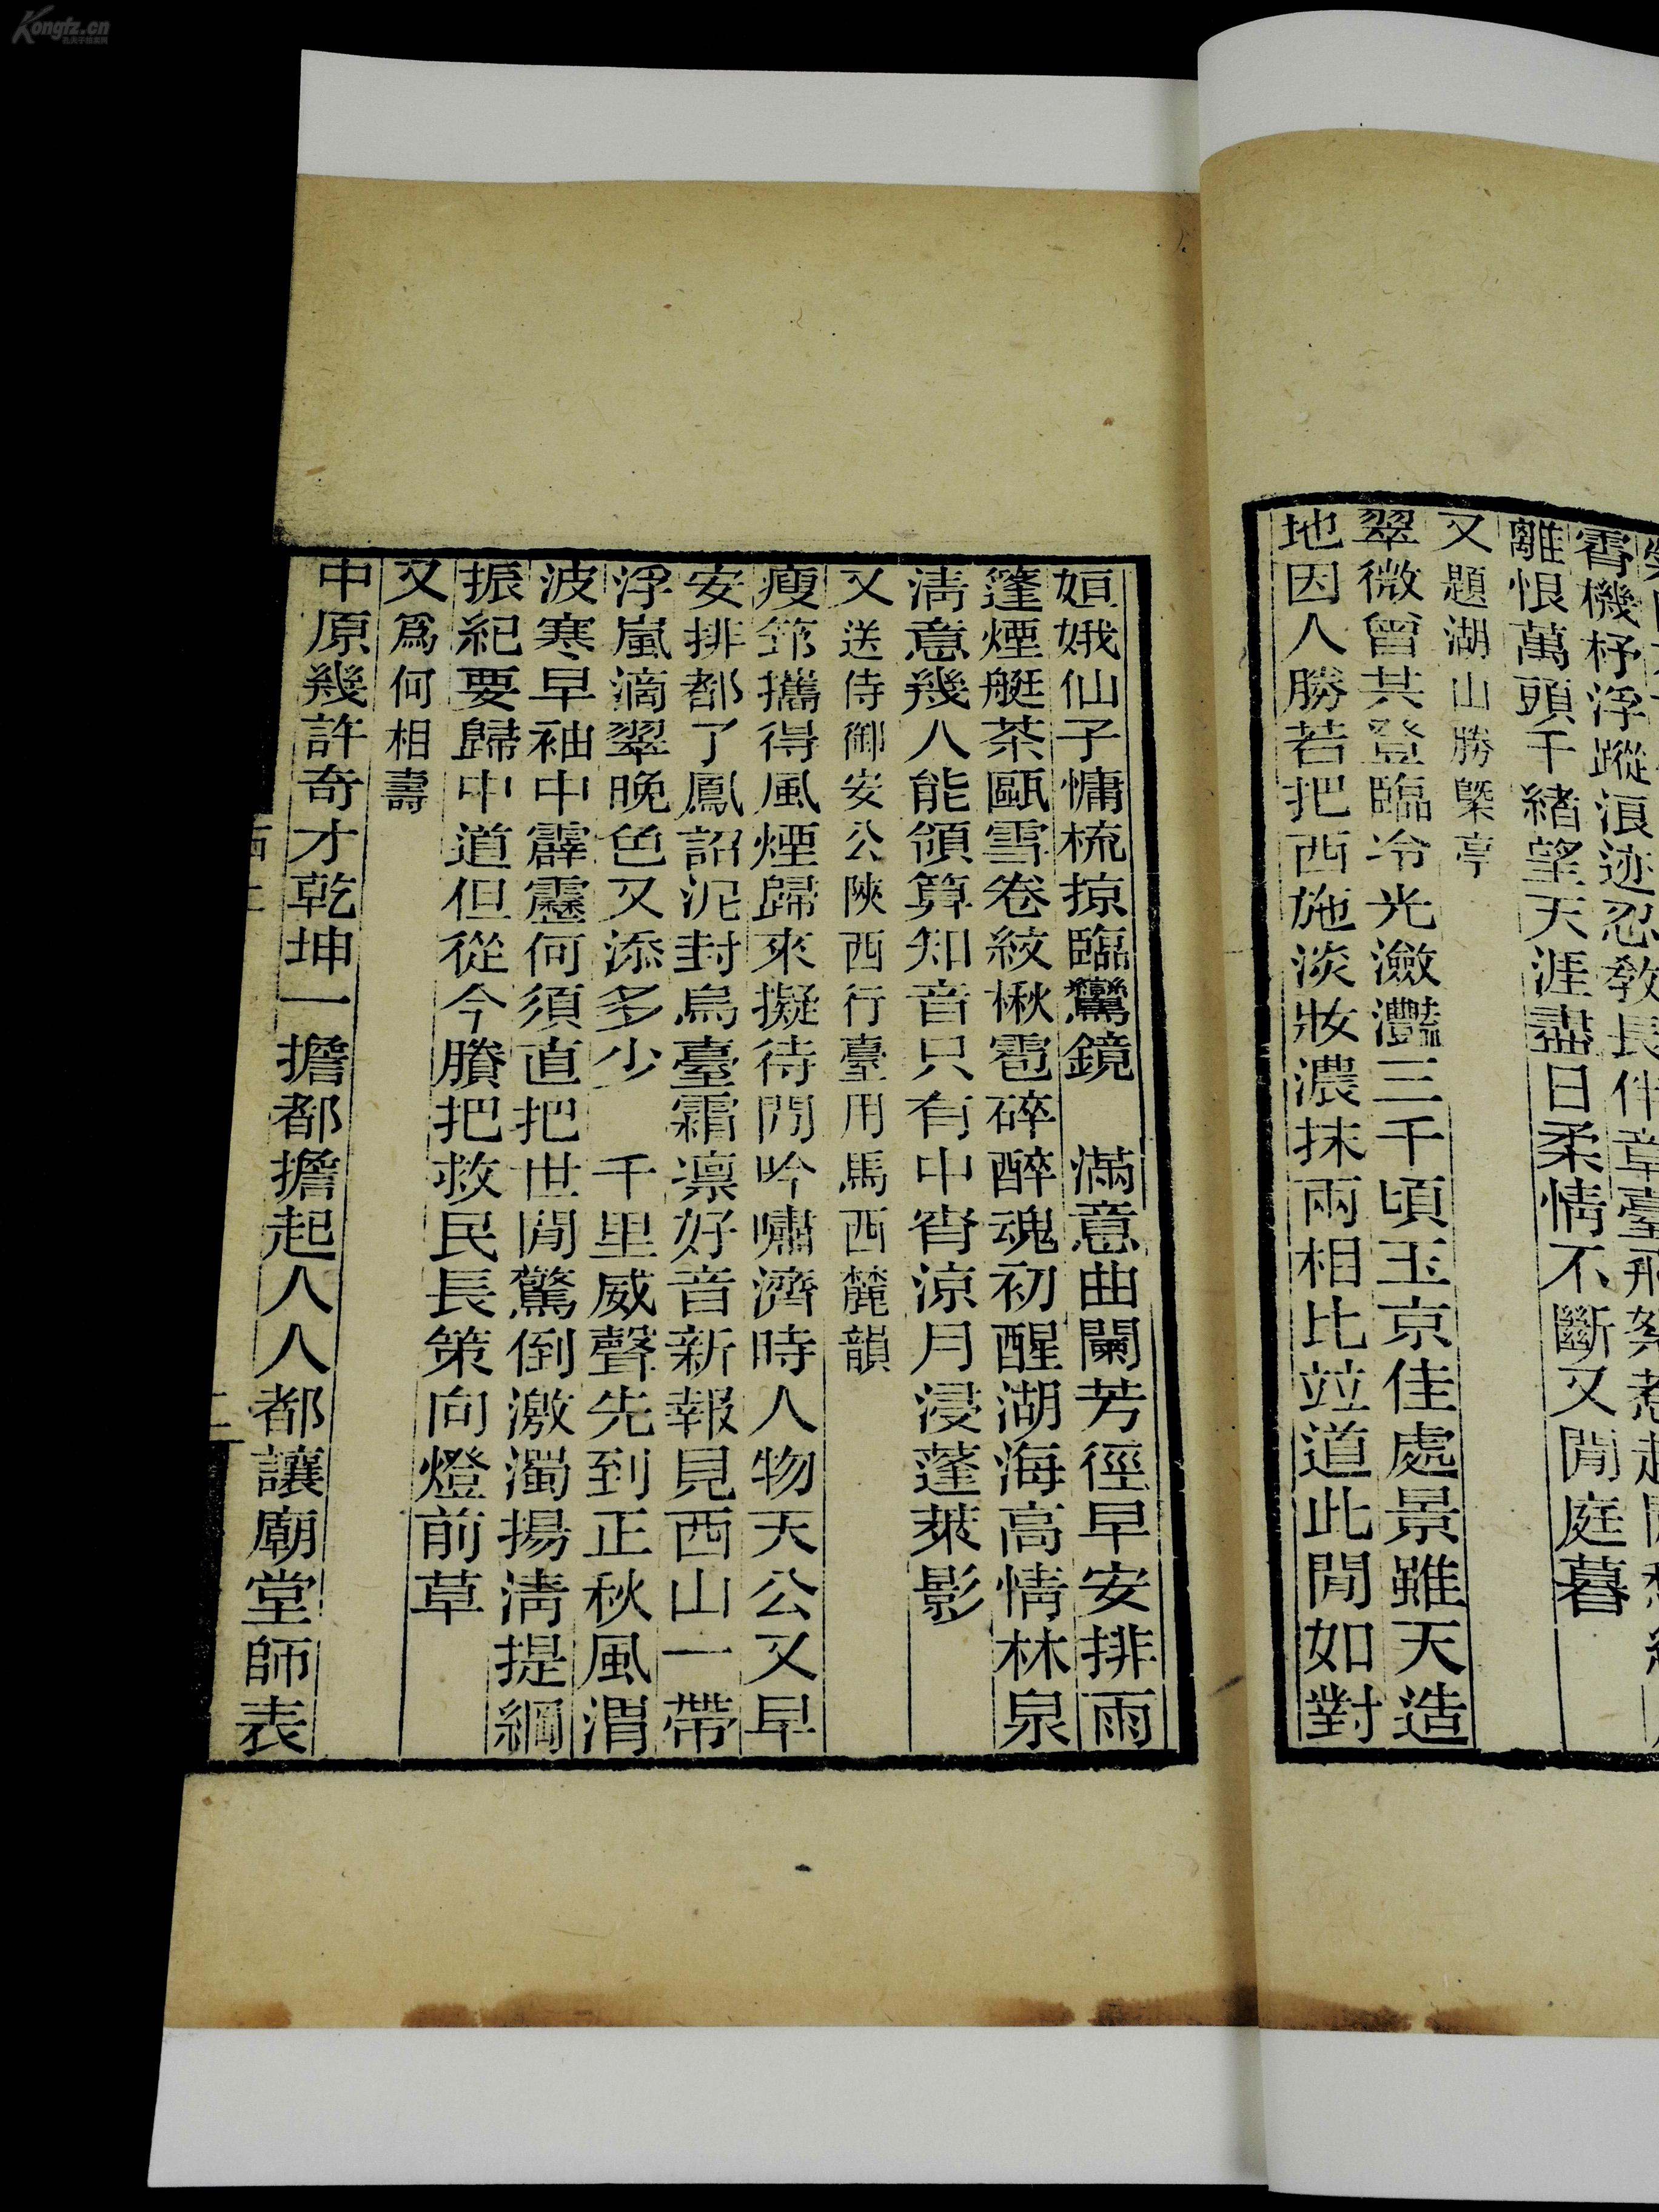 霄機杼浮蹤浪迹忍教長伴章臺飛絮惹起
離恨萬頭千緒望天涯盡日柔情不斷又閒庭暮
又題湖山勝槩亭
翠微曾共登臨冷光瀲灩三千頃玉京佳處景雖天造
地因人勝若把西施淡妝濃抹兩相比竝道此閒如對
姮娥仙子慵梳掠臨鸞鏡　滿意曲闌芳徑早安排雨
篷煙艇茶甌雪卷紋楸雹碎醉魂初醒湖海高情林泉
淸意幾人能領算知音只有中宵涼月浸蓬萊影
又送侍御安公陝西行臺用馬西麓韻
瘦筇攜得風煙歸來擬待閒吟嘯濟時人物天公又早
安排都了鳳詔泥封烏臺霜凛好音新報見西山一帶
浮嵐滴翠晚色又添多少　千里威聲先到正秋風渭
波寒早袖中霹靂何須直把世閒驚倒激濁揚淸提綱
振紀要歸中道但從今賸把救民長策向燈前草
又爲何相壽
中原幾許奇才乾坤一擔都擔起人人都讓廟堂師表
Kongfz.cn